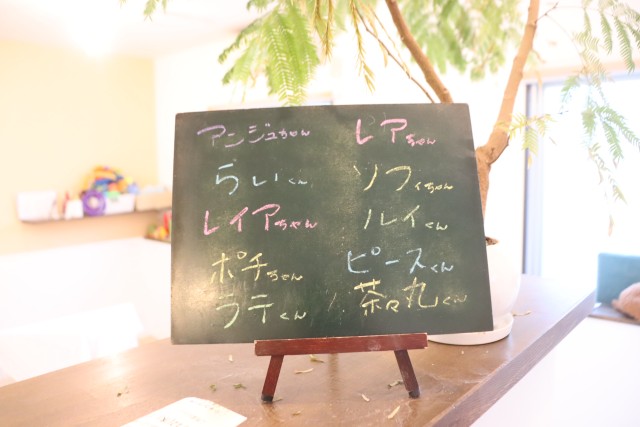 アンジュちゃん
らいくん
レイアちゃん
ポチちゃん
ラテくん
レアちゃん
ソフィちゃん
ルイくん
ピースくん
茶々丸くん